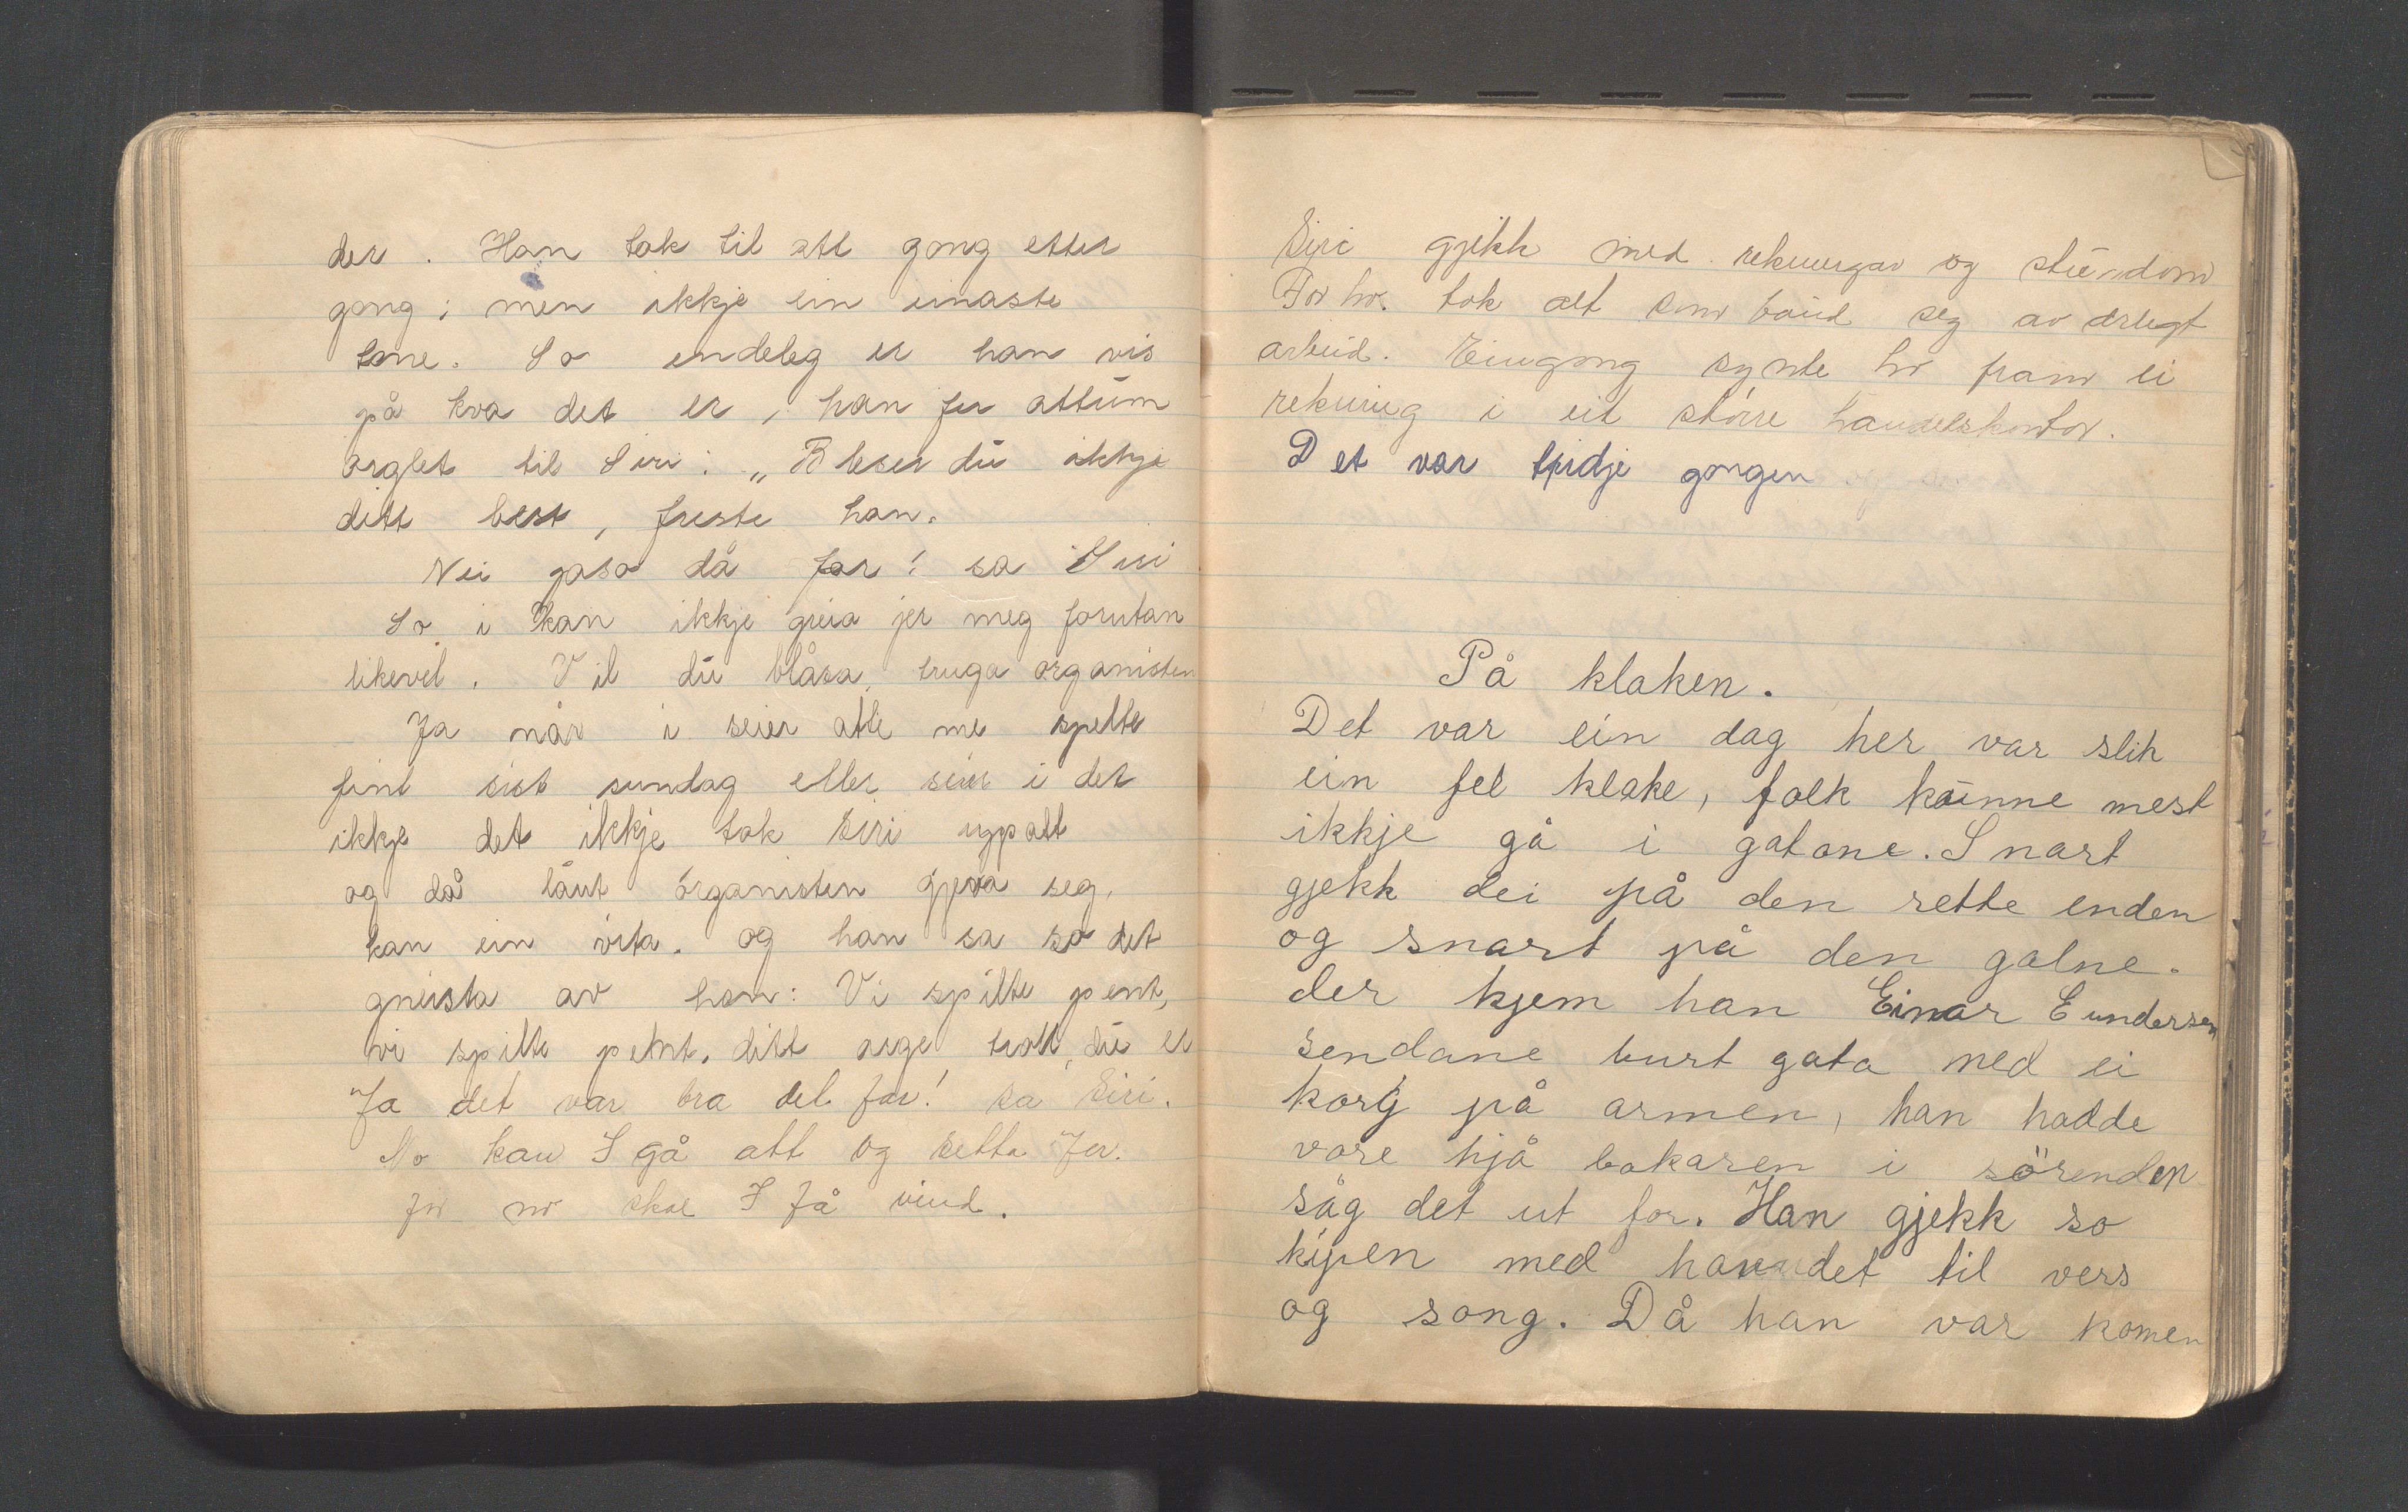 der. Han tok til att gong etter
gong; men ikkje ein einaste
tone. So endeleg er han vis
på kva det er, han fer attum
orglet til Siri: „Bleser du ikkje
ditt best, freste han.
Nei gaso då far! sa Siri
So i kan ikkje greia jer meg forutan
likevel. Vil du blåsa, truga organisten
Ja når i seier atte me spelte
fint sist sundag eller seier i det
ikkje det ikkje tok Siri uppatt
og då laut organisten gjeva seg,
kan ein vita. og han sa so det
gneista av han: Vi spilte pent,
vi spilte pent. ditt arge troll, du er
Ja det var bra det far! sa Siri.
No kan I gå att og setta Jer.
for no skal I få vind.
Siri gjekk med rekningar og stundom
For ho. tok alt som baud seg av ærlegt
arbeid. Eingong synte ho fram ei
rekning i eit större handelskontor.
Det var tridje gongen
På klaken.
Det var ein dag her var slik
ein fel klake, folk kunne mest
ikkje gå i gatone. Snart
gjekk dei på den rette enden
og snart på den galne.
der kjem han Einar Eundersen
sendane burt gata med ei
korg på armen, han hadde
vore hjå bakaren i sörenden
såg det ut for. Han gjekk so
kipen med havudet til vers
og song. Då han var komen